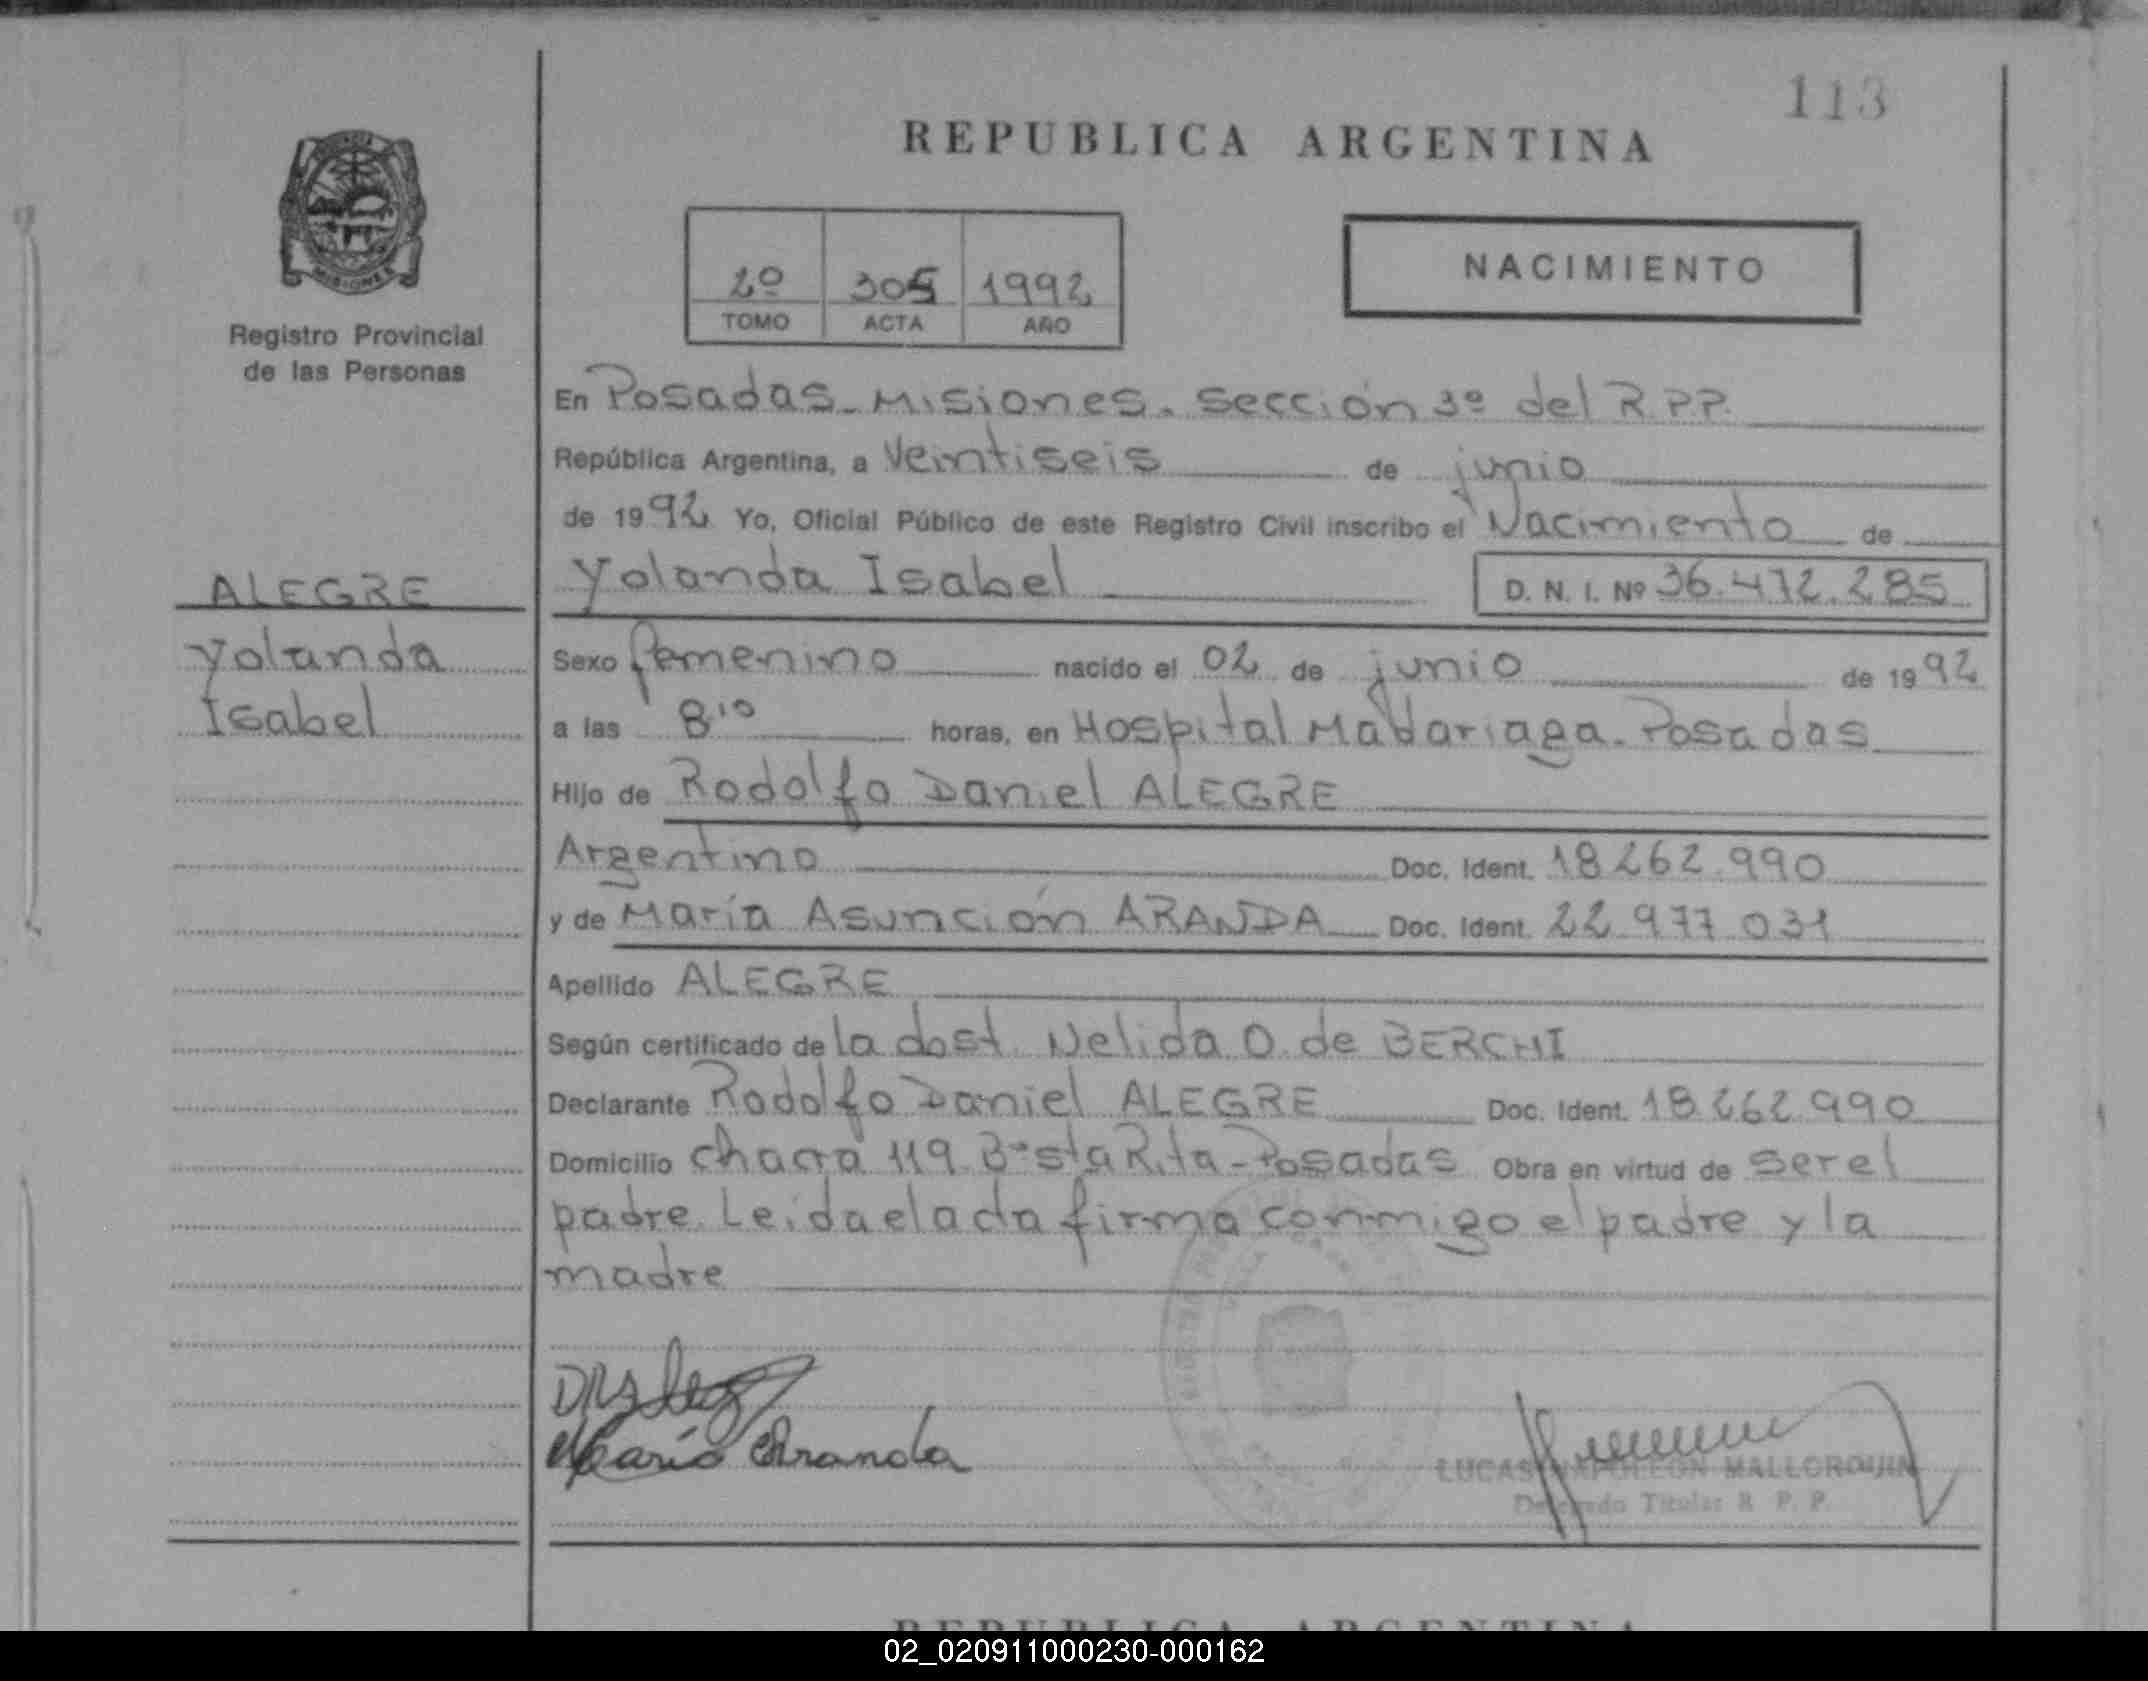 113
REPUBLICA ARGENTINA
MISIONES
Registro Provincial
de las Personas
2º 305 1992
TOMO ACTA AÑO
NACIMIENTO
En Posadas - Misiones. sección 3º del R.P.P.
República Argentina, a Veintiseis de junio
de 1992 Yo, Oficial Público de este Registro Civil inscribo el Nacimiento de
Yolanda Isabel D. N. I. Nº 36.472.285
ALEGRE
Yolanda
Isabel
Sexo femenino nacido el 02 de junio de 1992
a las 8¹⁰ horas, en Hospital Madariaga - Posadas
Hijo de Rodolfo Daniel ALEGRE
Argentino Doc. Ident. 18.262.990
y de María Asunción ARANDA Doc. Ident. 22.977.031
Apellido ALEGRE
Según certificado de la Nelida O. de BERCHI
Declarante Rodolfo Daniel ALEGRE Doc. Ident. 18.262.990
Domicilio chacra 119 Bº sta Rita - Posadas Obra en virtud de ser el
padre. Leida el acta firma conmigo el padre y la
madre
María Aranda
LUCAS NAPOLEON MALLORQUIN
Delegado Titular R. P. P.
REPUBLICA ARGENTINA
02_020911000230-000162